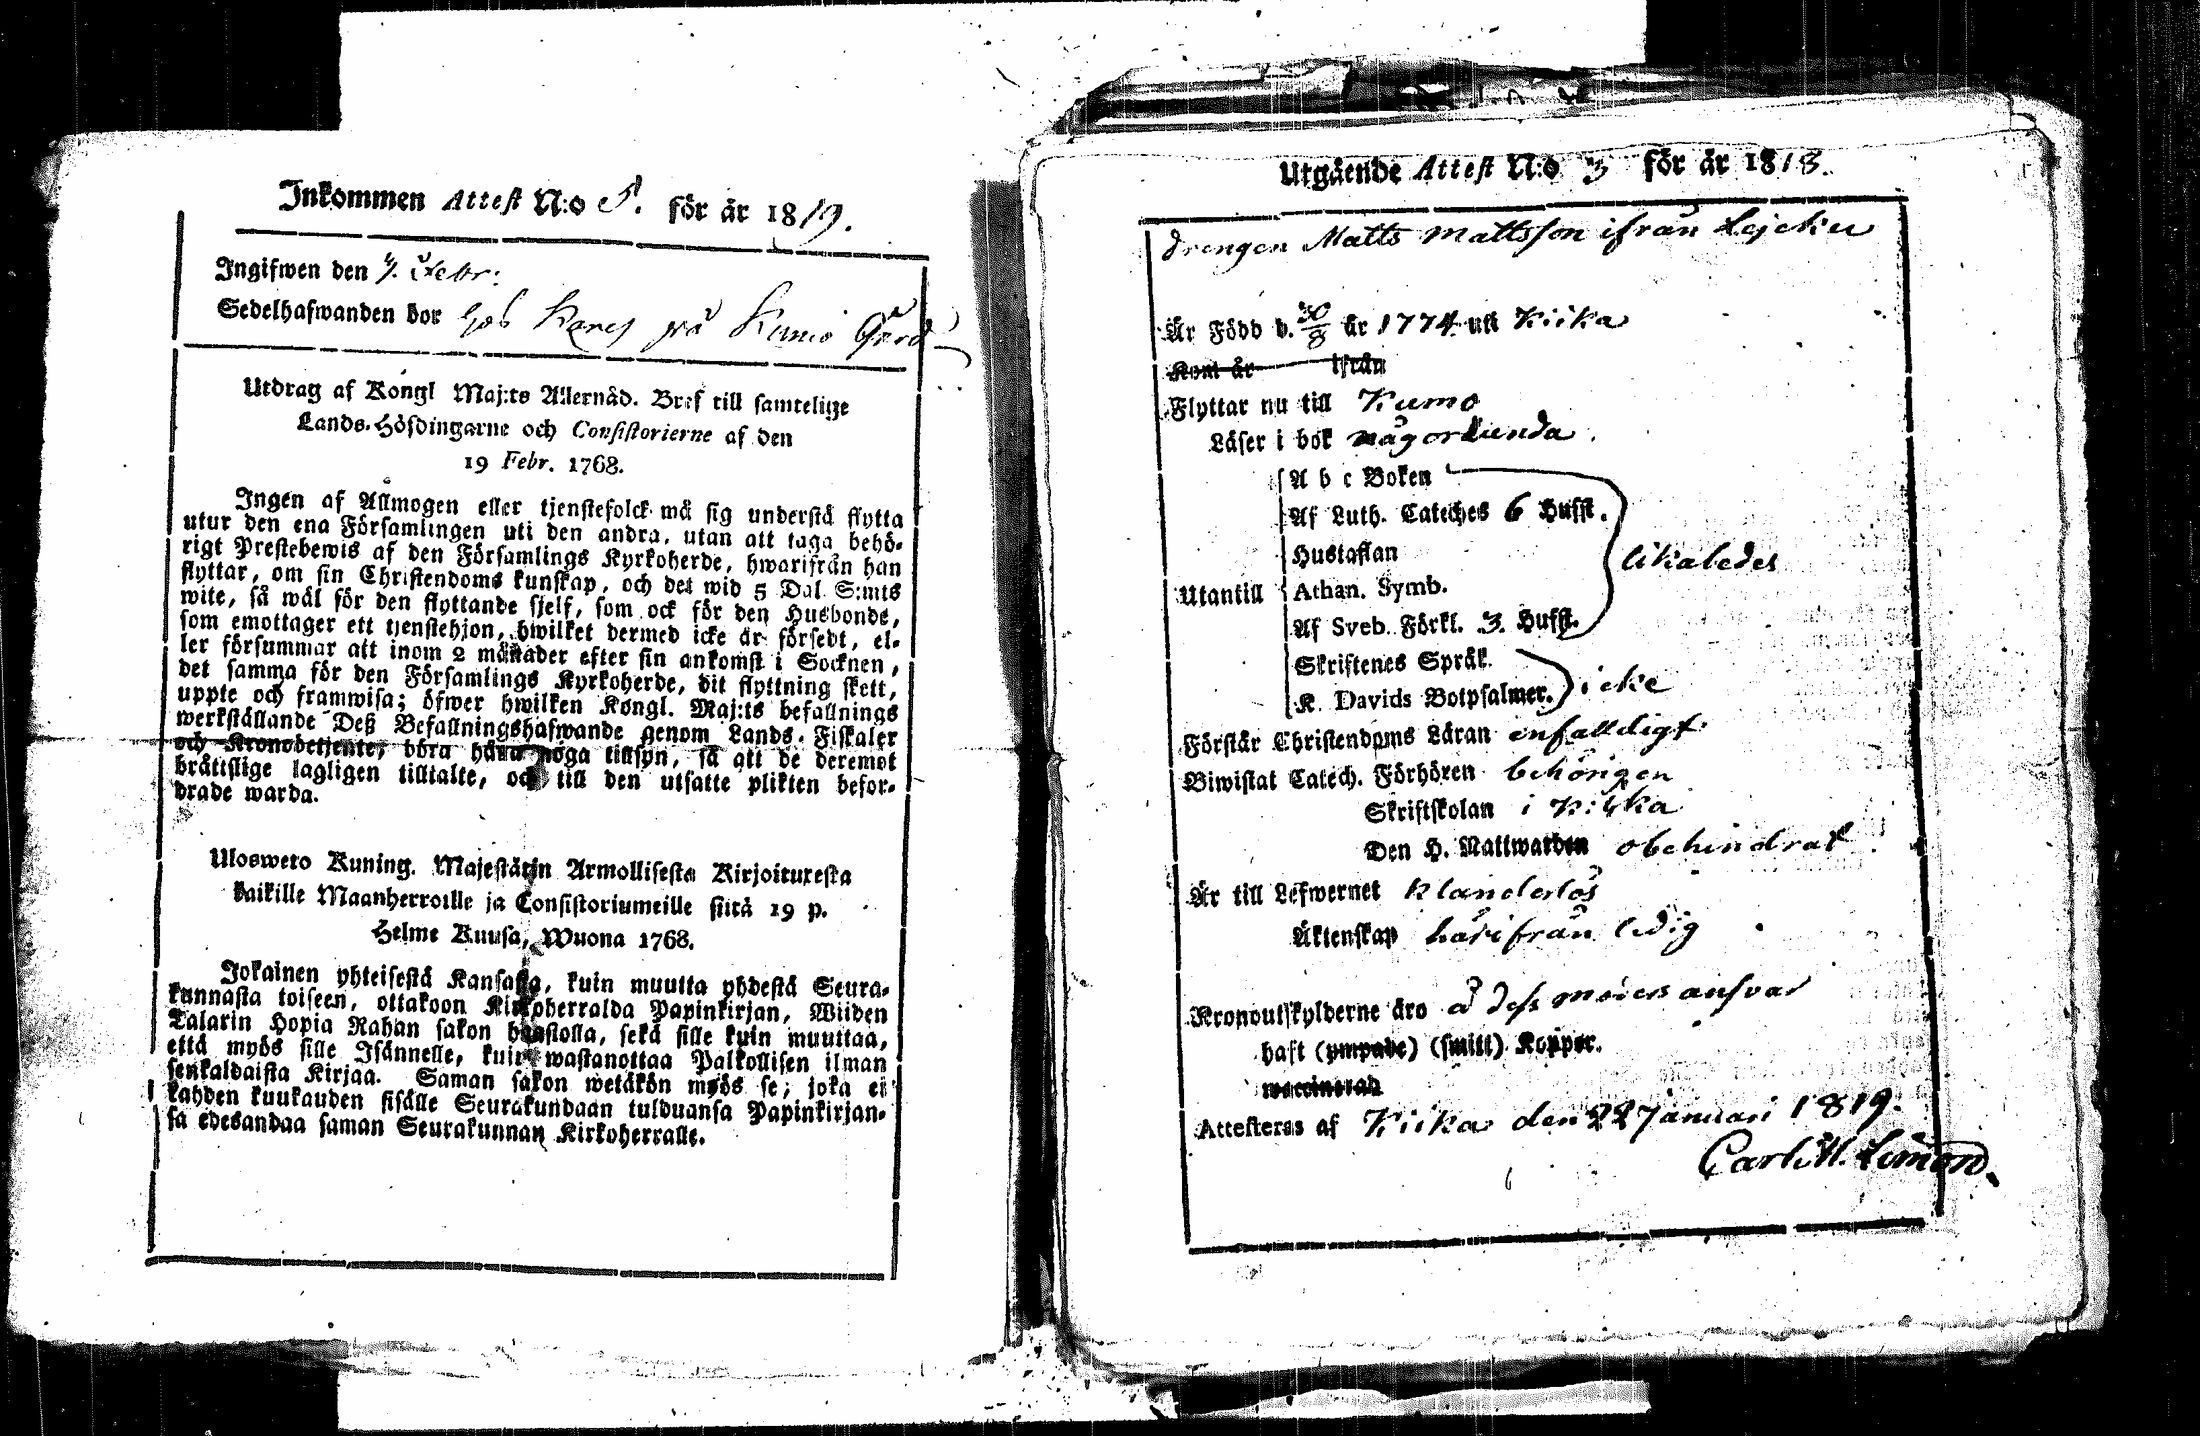 Inkommen Attest N:o 5. för år 1819.
Ingifwen den 4. Febr:
Sedelhafwanden bor hos Karej på Kumo Gård
Utdrag af Kongl Maj:ts Allernåd. Bref till samtelige
Lands-Höfdingarne och Consistorierne af den
19 Febr. 1768.
Ingen af Allmogen eller tjenstefolck må sig understå flytta
utur den ena Församlingen uti den andra, utan att taga behö-
rigt Prestebewis af den Församlings Kyrkoherde, hwarifrån han
flyttar, om sin Christendoms kunskap, och det wid 5 Dal S:mts
wite, så wäl för den flyttande sjelf, som ock för den Husbonde,
som emottager ett tjenstehjon, hwilket dermed icke är försedt, el-
ler försummar att inom 2 månader efter sin ankomst i Socknen,
det samma för den Församlings Kyrkoherde, dit flyttning skett,
uppte och framwisa; öfwer hwilken Kongl. Maj:ts befallnings
werkställande Deß Befallningshafwande genom Lands-Fiskaler
och Kronobetjente, böra hafwa noga tillsyn, så att de deremot
bråttslige lagligen tilltalte, och till den utsatte plikten befor-
drade warda.
Ulosweto Kuning. Majestätin Armollisesta Kirjoituxesta
kaikille Maanherroille ja Consistoriumeille siitä 19 p.
Helme Kuusa, Wuona 1768.
Jokainen yhteisestä Kansasta, kuin muutta yhdestä Seura-
kunnasta toiseen, ottakoon Kirkoherralda Papinkirjan, Wiiden
Talarin Hopia Rahan sakon haastolla, sekä sille kuin muuttaa,
että myös sille Isännelle, kuin wastanottaa Palkollisen ilman
senkaldaista Kirjaa. Saman sakon wetäkön myös se, joka ei
kahden kuukauden sisälle Seurakundaan tulduansa Papinkirjan-
sa edesandaa saman Seurakunnan Kirkoherralle.
Utgående Attest N:o 3 för år 1818.
drengen Matts Mattsson ifrån Lejeku
Är Född d. 30/8 år 1774 uti Kiika
Kom år ifrån
Flyttar nu till Kumo
Läser i bok någorlunda.
A b c Boken
Af Luth. Cateches 6 Hufst.
Hustaflan
likaledes
Utantill Athan. Symb.
Af Sveb. Förkl. 3. Hufst.
Skriftenes Språk.
K. Davids Botpsalmer. icke
Förstår Christendoms Läran enfalldigt
Biwistat Catech. Förhören behörigen
Skriftskolan i Kiika
Den H. Nattwarden obehindrat
Är till Lefwernet klanderlös
Äktenskap härifrån ledig
Kronoutskylderne äro å dess ansvar
haft (ympade) (smitt) Koppor.
waccinerad
Attesteras af Kiika den 22 Januari 1819.